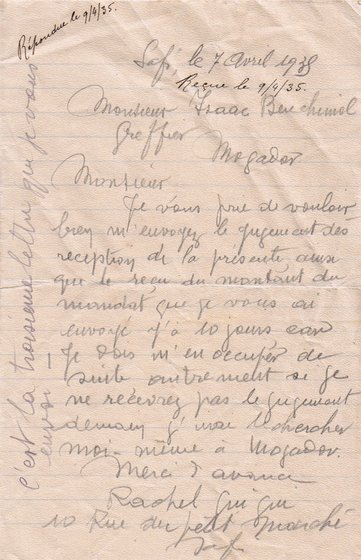 Répondue le 9/4/35.
Safi, le 7 Avril 1935
Reçue le 9/4/35.
Monsieur Isaac Benchimol
Greffier
Mogador
Monsieur
Je vous prie de vouloir
bien m'envoyez le jugement des
reception de la présente ainsi
que le reçu du montant du
mandat que je vous ai
envoyé y'a 10 jours car
Je dois m'en occuper de
suite autrement si je
ne recevrez pas le jugement
demain j'irai le chercher
moi-même à Mogador.
Merci d'avance
Rachel Guigui
10 Rue du petit Marché
Safi
C'est la troisieme lettre que je vous
envoi